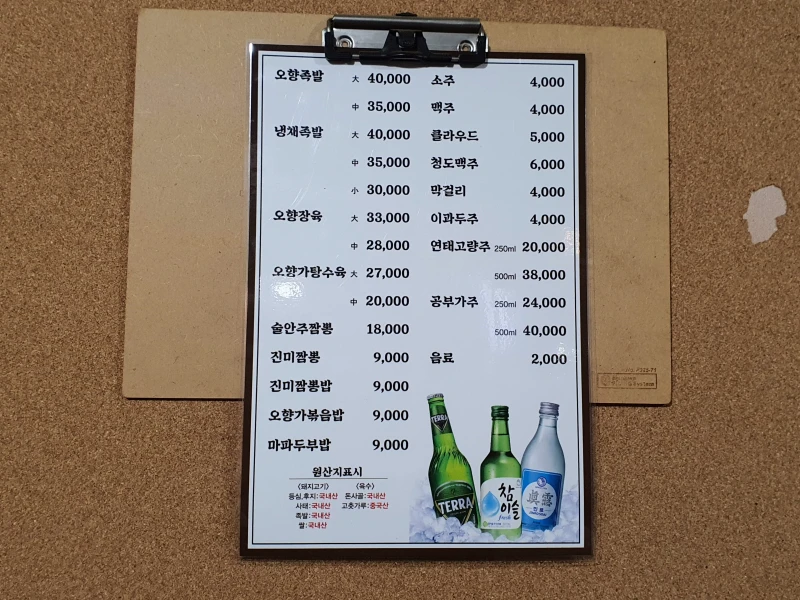 오향족발 大 40,000
中 35,000
냉채족발 大 40,000
中 35,000
小 30,000
오향장육 大 33,000
中 28,000
오향가탕수육 大 27,000
中 20,000
술안주짬뽕 18,000
진미짬뽕 9,000
진미짬뽕밥 9,000
오향가볶음밥 9,000
마파두부밥 9,000
원산지표시
〈돼지고기〉
등심,후지:국내산
사태:국내산
족발:국내산
쌀:국내산
〈육수〉
돈사골:국내산
고춧가루:중국산
소주 4,000
맥주 4,000
클라우드 5,000
청도맥주 6,000
막걸리 4,000
이과두주 4,000
연태고량주 250ml 20,000
500ml 38,000
공부가주 250ml 24,000
500ml 40,000
음료 2,000
TERRA
TERRA
참
이슬
眞露
진로